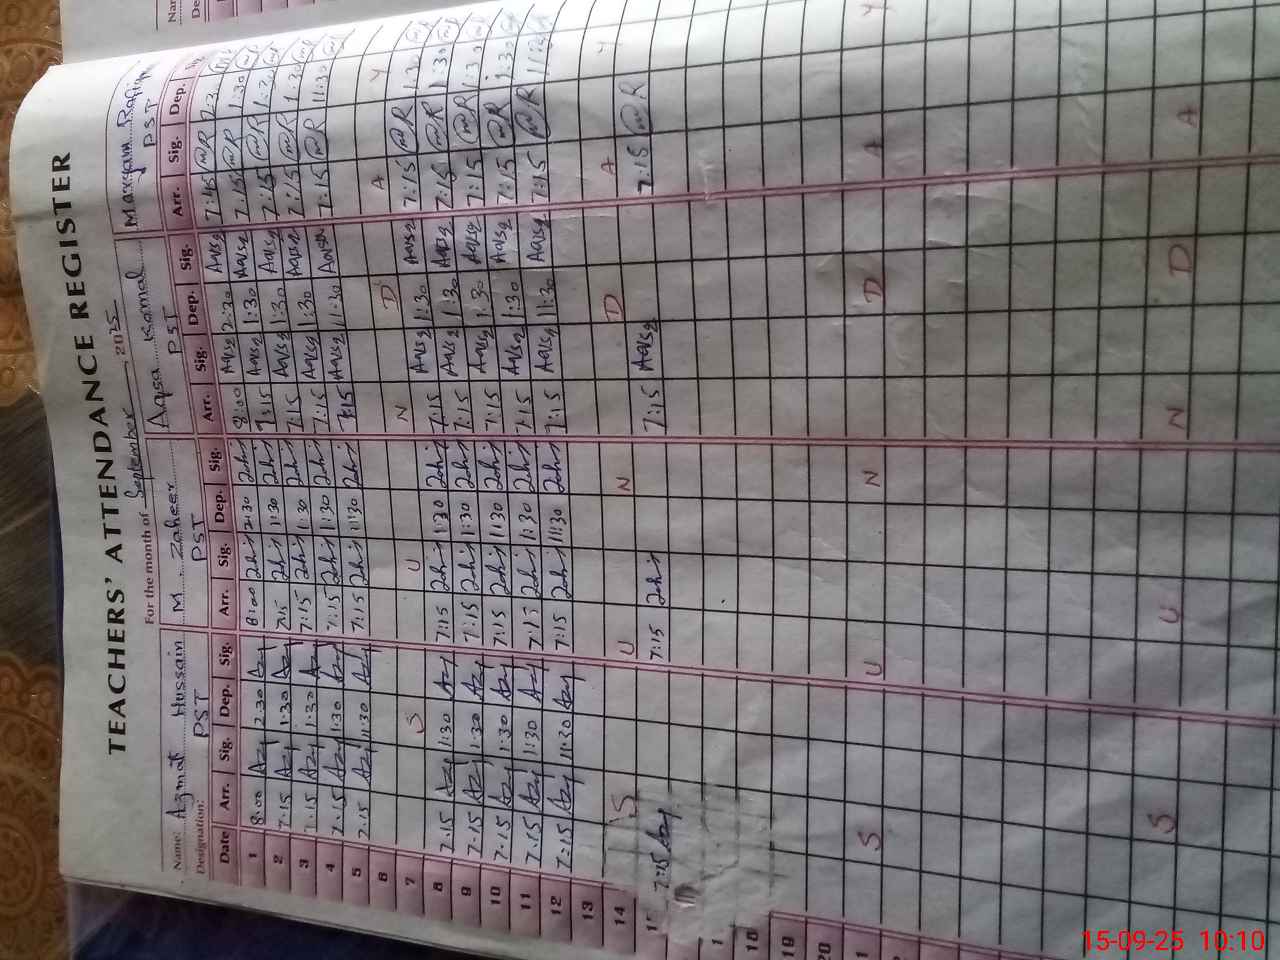 TEACHERS' ATTENDANCE REGISTER
For the month of September, 2025
Name: Azmat Hussain M. Zaheer Aqsa Kamal Maryam Rafique
Designation: PST PST PST PST
Date Arr. Sig. Dep. Sig. Arr. Sig. Dep. Sig. Arr. Sig. Dep. Sig. Arr. Sig. Dep.
1 8:00 Azy 2:30 Azy 8:00 Zahir 2:30 Zahir 8:00 Aqsa 2:30 Aqsa 7:15 MR
2 7:15 Azy 1:30 Azy 7:15 Zahir 1:30 Zahir 7:15 Aqsa 1:30 Aqsa 7:15 MR 1:30
3 7:15 Azy 1:30 Azy 7:15 Zahir 1:30 Zahir 7:15 Aqsa 1:30 Aqsa 7:15 MR 1:30
4 7:15 Azy 1:30 Azy 7:15 Zahir 1:30 Zahir 7:15 Aqsa 1:30 Aqsa 7:15 MR 1:30
5 7:15 Azy 11:30 Azy 7:15 Zahir 11:30 Zahir 7:15 Aqsa 11:30 Aqsa 7:15 MR 11:30
6
7 S U N D A Y
8 7:15 Azy 1:30 Azy 7:15 Zahir 1:30 Zahir 7:15 Aqsa 1:30 Aqsa 7:15 MR 1:30
9 7:15 Azy 1:30 Azy 7:15 Zahir 1:30 Zahir 7:15 Aqsa 1:30 Aqsa 7:15 MR 1:30
10 7:15 Azy 1:30 Azy 7:15 Zahir 1:30 Zahir 7:15 Aqsa 1:30 Aqsa 7:15 MR 1:30
11 7:15 Azy 1:30 Azy 7:15 Zahir 1:30 Zahir 7:15 Aqsa 1:30 Aqsa 7:15 MR 1:30
12 7:15 Azy 11:30 Azy 7:15 Zahir 11:30 Zahir 7:15 Aqsa 11:30 Aqsa 7:15 MR 11:30
13
14 S U N D A Y
7:15 Azy 7:15 Zahir 7:15 Aqsa 7:15 MR
18
19
20
S U N D A Y
S U N D A
15-09-25 10:10